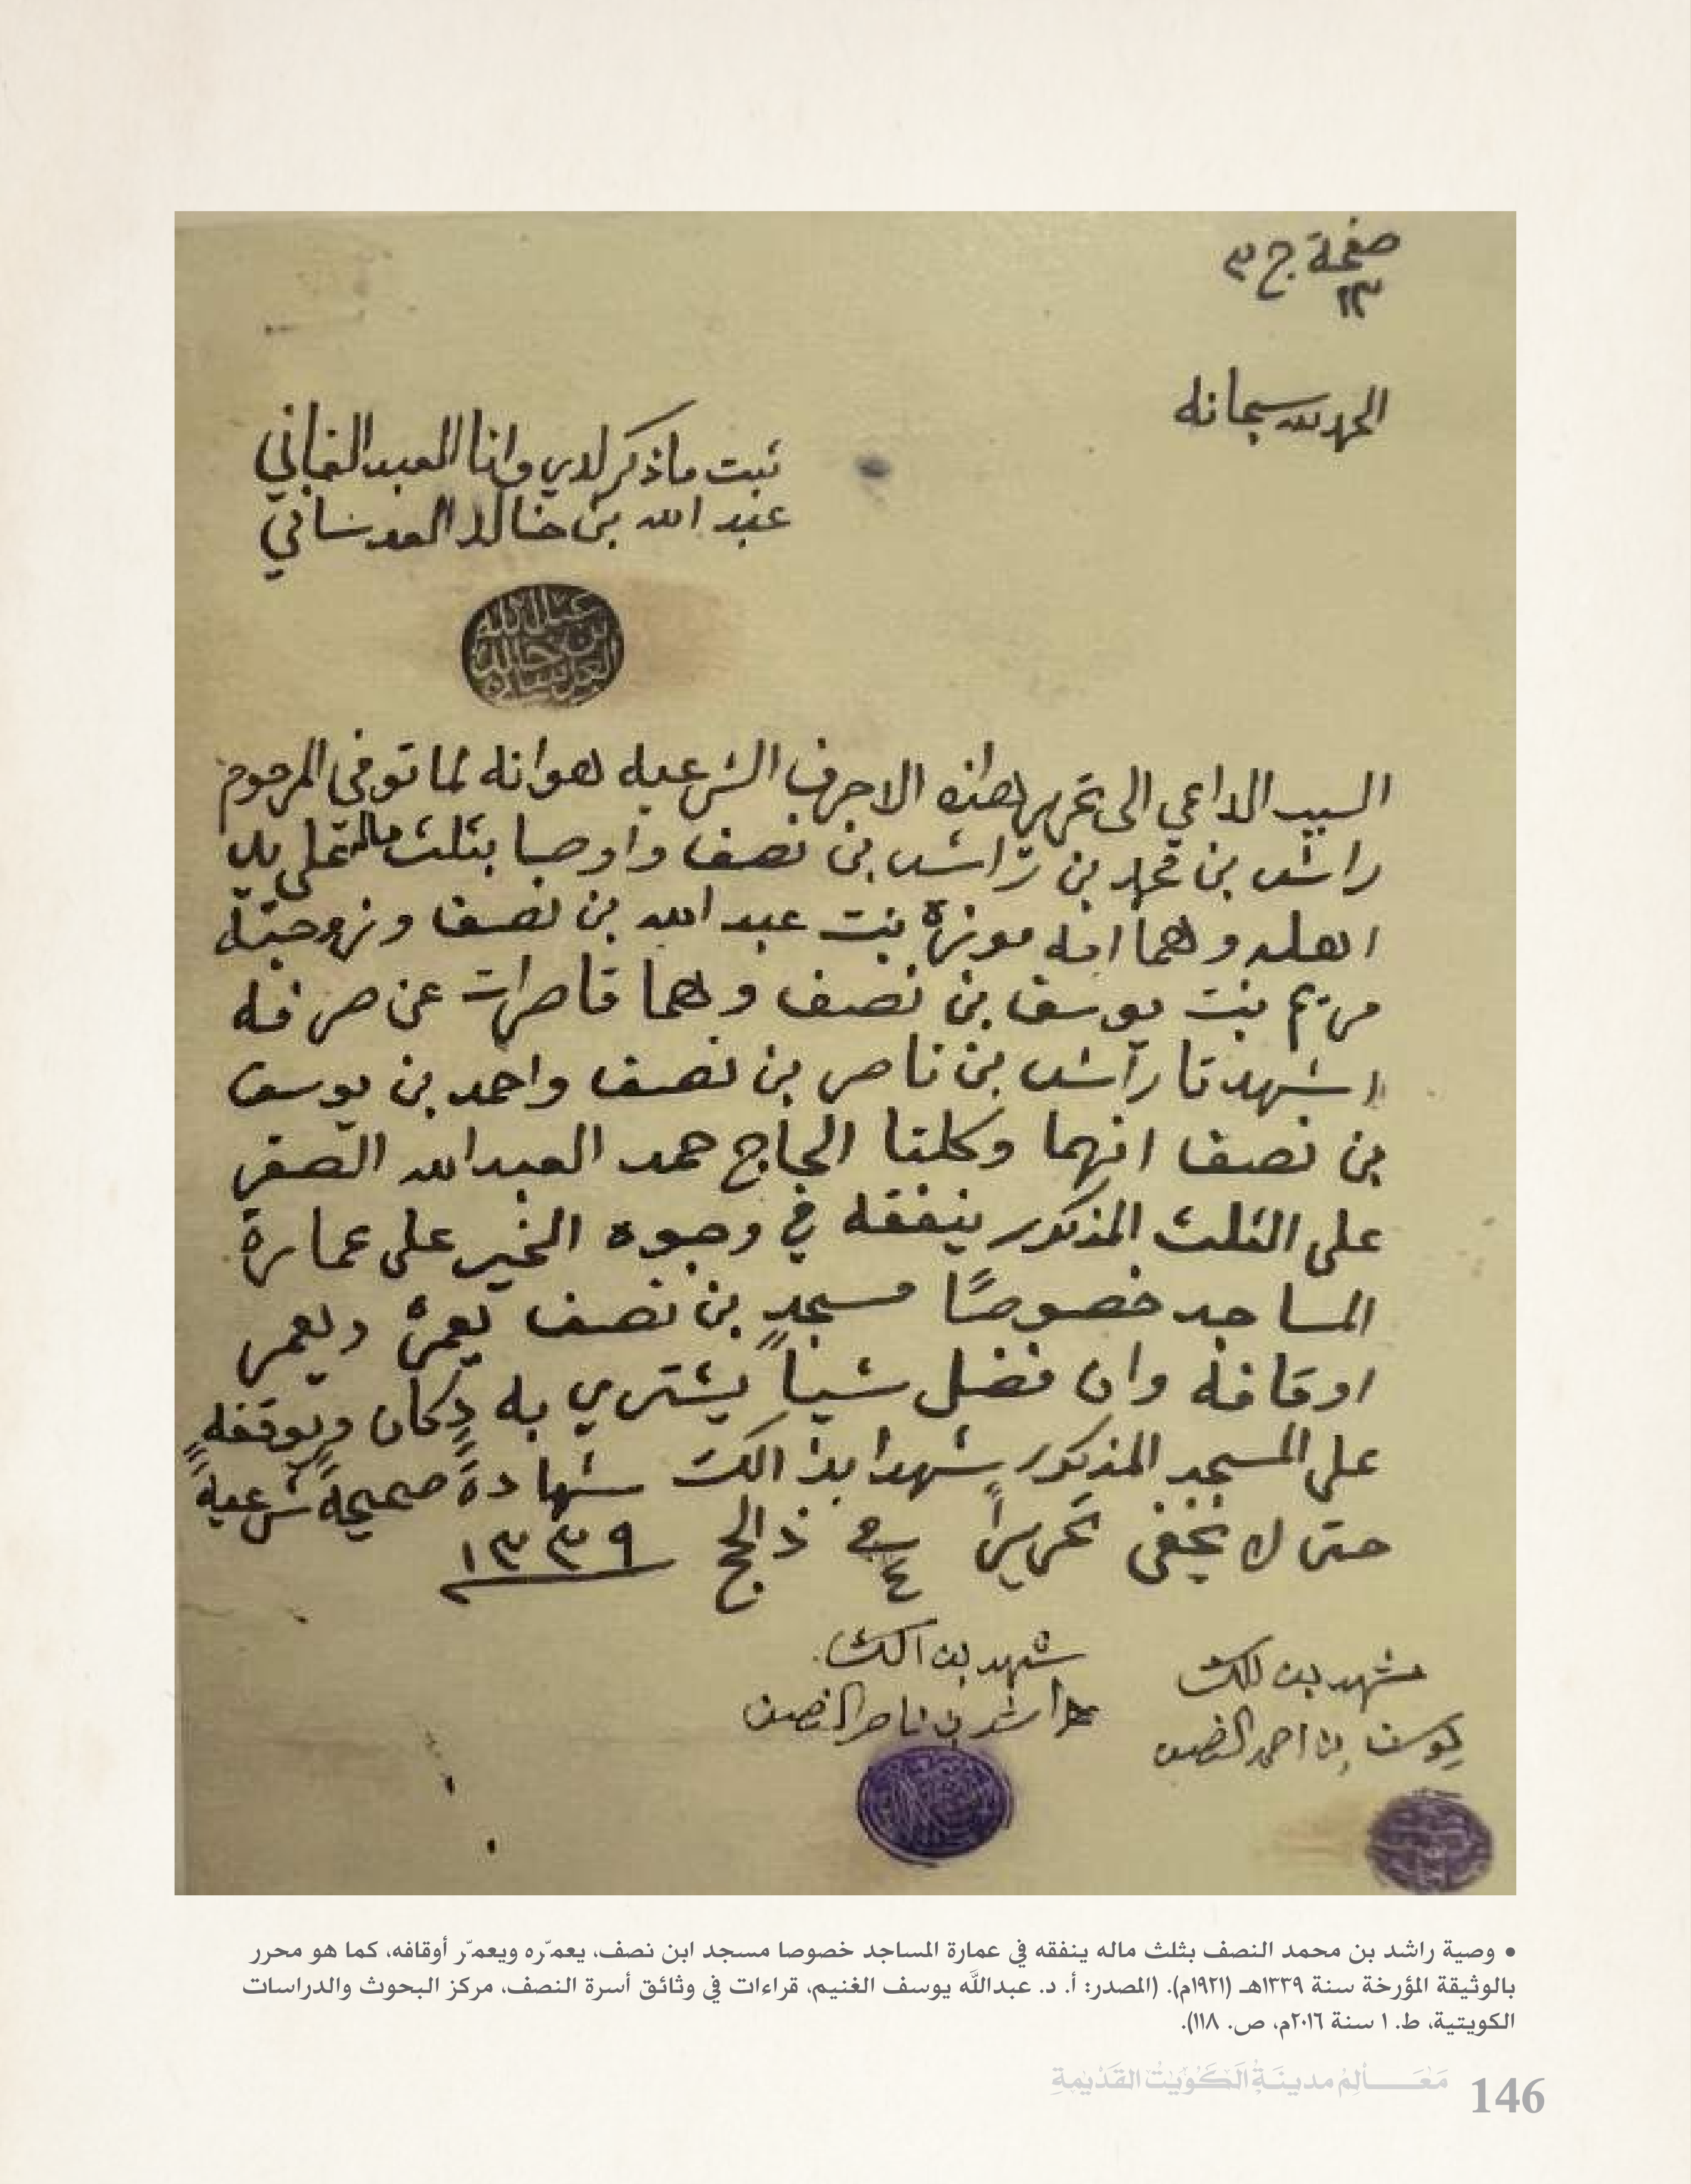 صفحة ج ٣
١٣
الحمد لله سبحانه
ثبت ما ذكر لدي وانا العبد الفاني
عبد الله بن خالد العدساني
عبد الله
بن خالد
العدساني
السبب الداعي الى تحرير هذه الاحرف الشرعيه هو انه لما توفي المرحوم
راشد بن محمد بن راشد بن نصف واوصا بثلث ماله على يد
اهله وهما امه موزة بنت عبد الله بن نصف وزوجته
مريم بنت يوسف بن نصف وهما قاصرات عن صرفه
اشهدتا راشد بن ناصر بن نصف واحمد بن يوسف
بن نصف انهما وكلتا الحاج حمد العبدالله الصقر
على الثلث المذكور ينفقه في وجوه الخير على عمارة
المساجد خصوصًا مسجدٍ بن نصف يعمرهُ ويعمر
اوقافه وان فضل شياً يشتري به دكان ويوقفه
على المسجد المذكور شهدا بذالك شهادةً صحيحةً شرعيةً
حتى لا يخفى تحريراً في ٤ ذالحج ١٣٣٩
شهد بذالك
راشد بن ناصر النصف
شهد بذلك
يوسف بن احمد النصف
• وصية راشد بن محمد النصف بثلث ماله ينفقه في عمارة المساجد خصوصا مسجد ابن نصف، يعمّره ويعمّر أوقافه، كما هو محرر
بالوثيقة المؤرخة سنة ١٣٣٩هـ (١٩٢١م). (المصدر: أ. د. عبداللَّه يوسف الغنيم، قراءات في وثائق أسرة النصف، مركز البحوث والدراسات
الكويتية، ط. ١ سنة ٢٠١٦م، ص. ١١٨).
مَعَالِمُ مدينَةِ الكُوَيْتِ القَدِيمَةِ
146